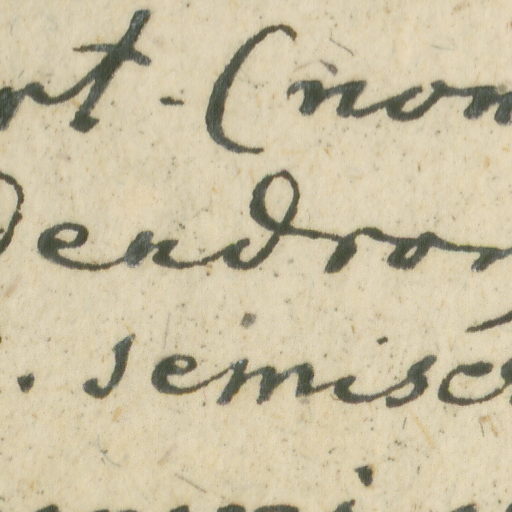 rt - (nom
dendron
. semisc